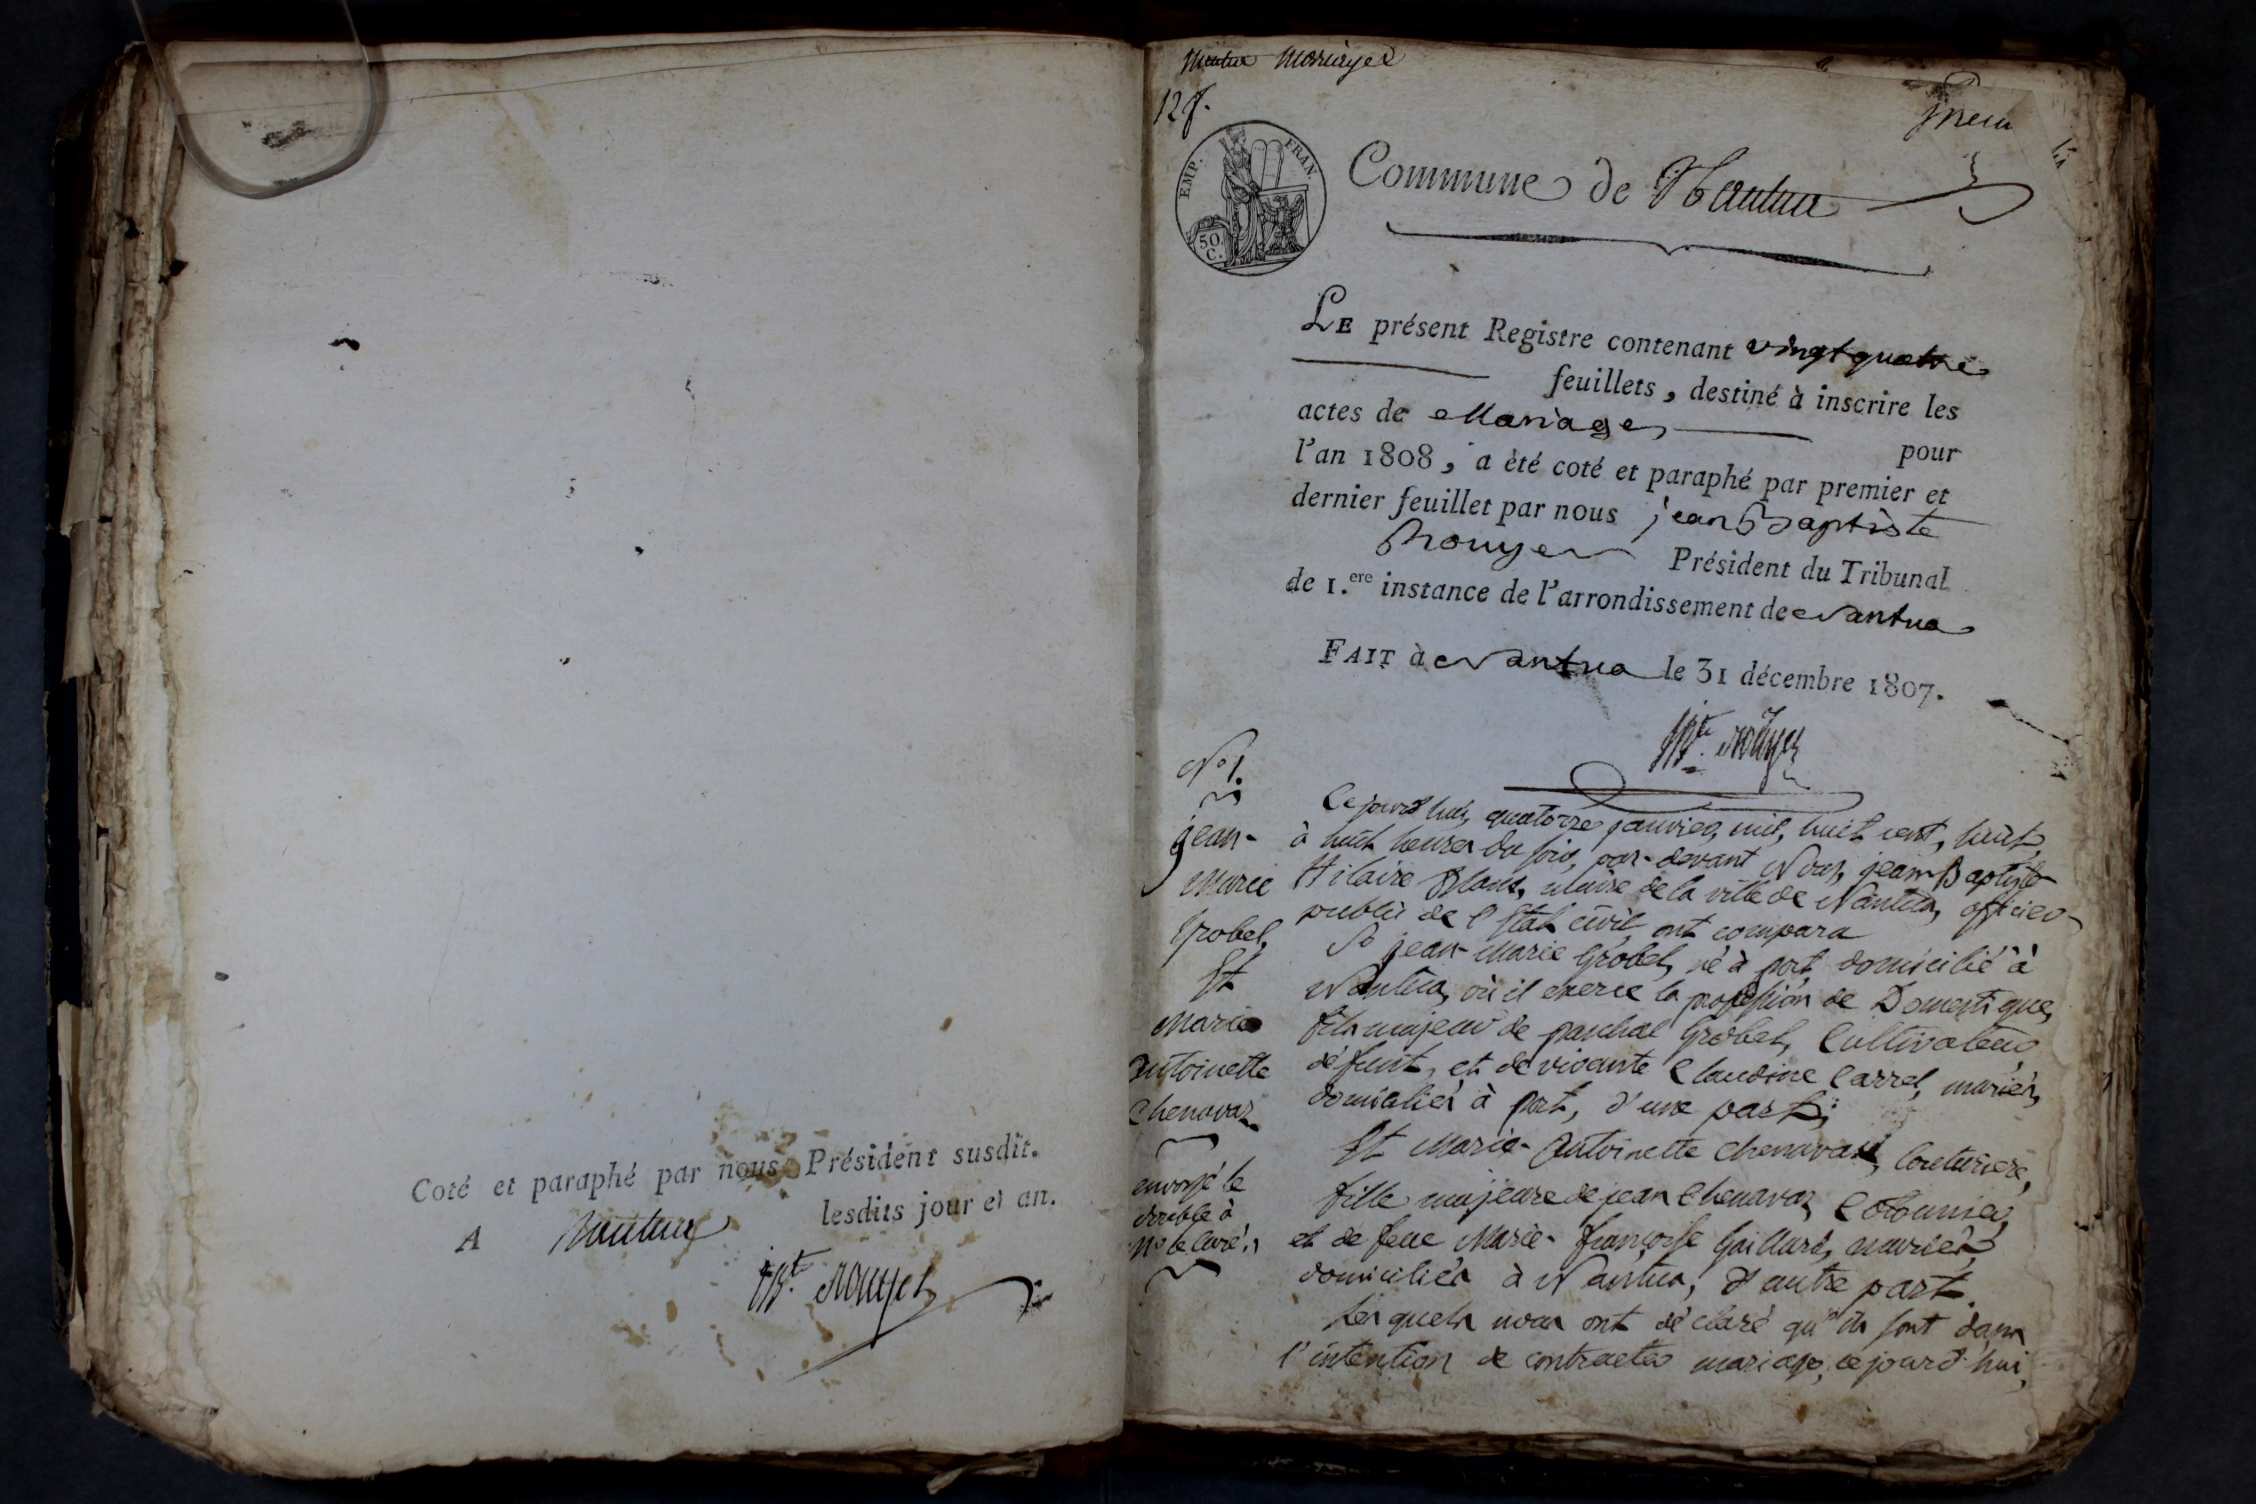 Coté et paraphé par nous Président susdit.
lesdits jour et an.
A Nantua
JBte Rouyer
Nantua Mariages
12 f.
EMP. FRAN.
50 C.
Commune de Nantua
LE présent Registre contenant vingt quatre
feuillets, destiné à inscrire les
actes de Mariages pour
l'an 1808, a été coté et paraphé par premier et
dernier feuillet par nous jean Baptiste
Rouyer Président du Tribunal
de 1.ere instance de l'arrondissement de Nantua
FAIT à Nantua le 31 décembre 1807.
JBte Rouyer
No 1.
jean-
Marie
Grobel,
Et
Marie
antoinette
Chenavaz
envoyé le
double à
Mr le Curé.
Cejourd'hui, quatorze janvier, mil, huit cent, huit,
à huit heures du soir, par-devant Nous, jean Baptiste
Hilaire maire de la ville de Nantua, officier
public de l'Etat civil, ont comparu
Sr jean-Marie Grobel, né à port, domicilié à
Nantua, où il exerce la profession de Domestique,
fils majeur de paschal Grobel, Cultivateur
défunt, et de vivante Claudine Carrel, mariés,
domiciliés à port, d'une part;
Et Marie-antoinette Chenavaz, Couturière,
fille majeure de jean Chenavaz,
et de feue Marie-françoise Gaillard, mariés,
domiciliés à Nantua, d'autre part.
Lesquels nous ont déclaré qu'ils sont dans
l'intention de contracter mariage, cejourd'hui,